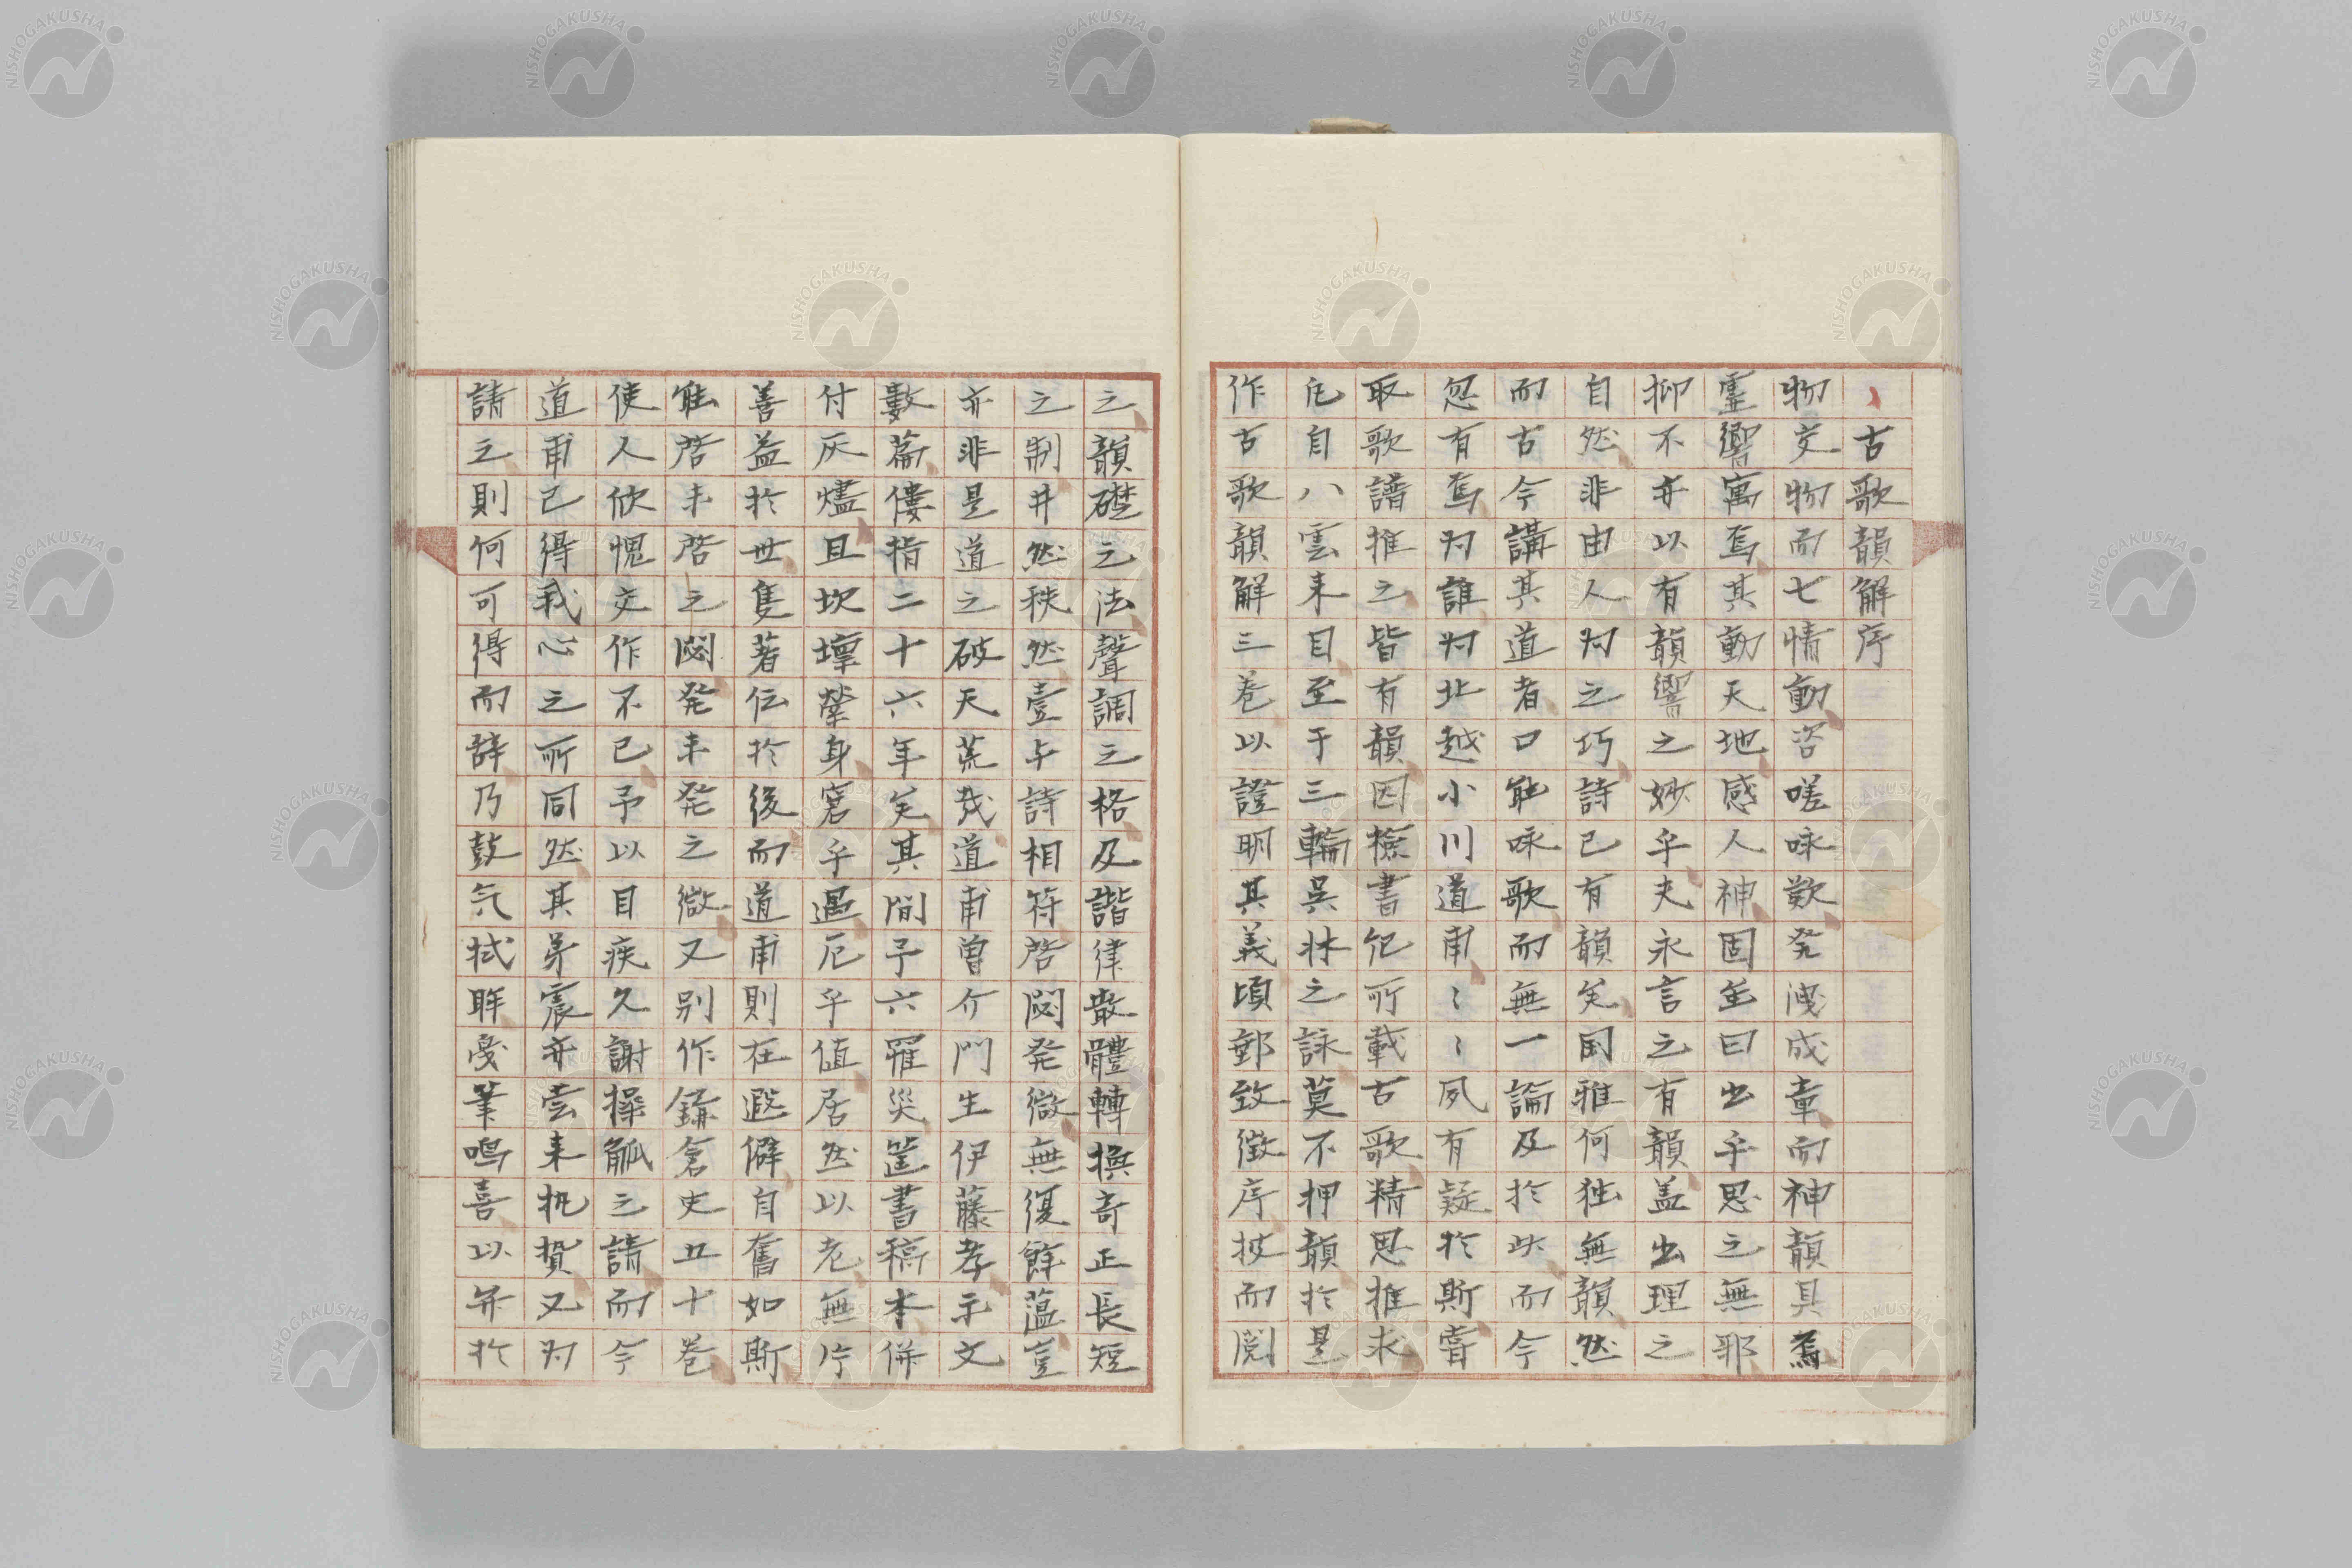 古歌韻解序
物交物而七情動咨嗟咏歎発洩成章而神韻具焉
霊響寓焉其動天地感人神固宜曰出乎思之無邪
抑不亦以有韻響之妙乎夫永言之有韻盖出理之
自然非由人为之巧詩已有韻矣国雅何独無韻然
而古今講其道者口能咏歌而無一論及於此而今
忽有焉为誰为北越小川道甫〻〻夙有疑於斯嘗
取歌譜推之皆有韻因檢書紀所載古歌精思推求
凢自八雲来目至于三輪呉牀之詠莫不押韻於是
作古歌韻解三巻以證明其義頃郵致徴序披而閲
之韻礎之法聲調之格及諧律散體轉換奇正長短
之制井然秩然壹与詩相符啓閟発微無復餘蘊豈
亦非是道之破天荒哉道甫曽介門生伊藤孝示文
數篇僂指二十六年矣其間予六罹災筐書稿本併
付灰燼且坎壈犖身窘乎遇厄乎值居然以老無片
善益於世隻著伝於後而道甫則在遐僻自奮如斯
能啓未啓之閟発未発之微又别作鎌倉史廿十巻
使人欣愧交作不已予以目疾久謝操觚之請而今
道甫已得我心之所同然其弟震亦尝来執贄又为
請之則何可得而辞乃鼓気拭眸戞筆鳴喜以弁於